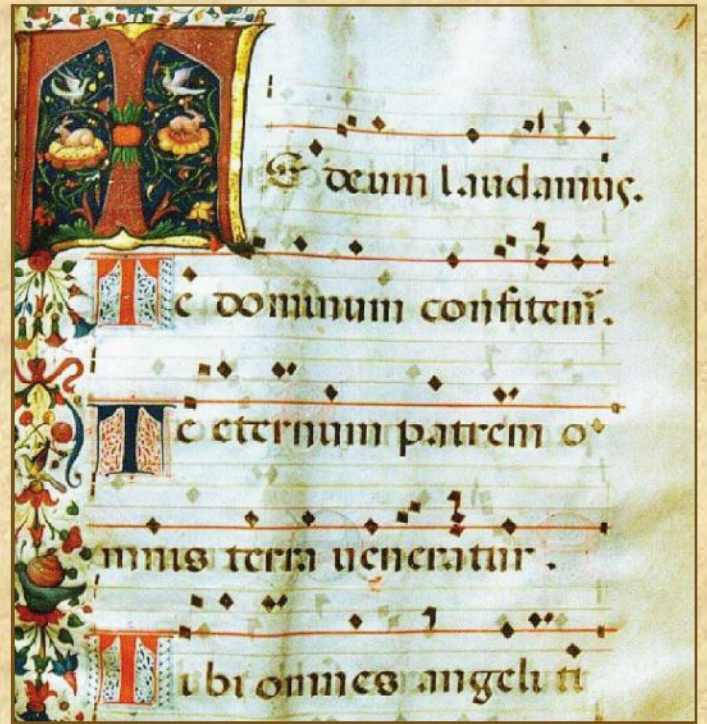 Te deum laudamus.
Te dominum confitem̄.
Te eternum patrem o
mnis terra ueneratur.
Tibi omnes angeli ti